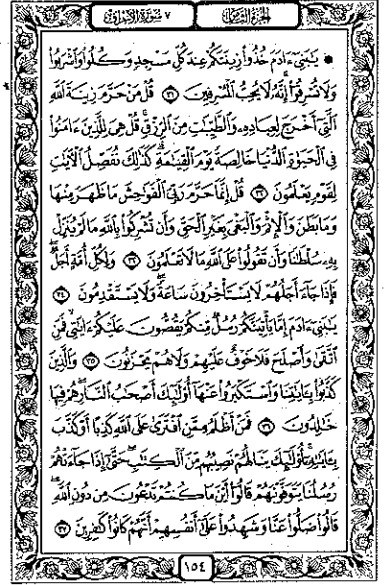 الجزء الثامن
٧ سورة الأعراف
۞ يَٰبَنِيٓ ءَادَمَ خُذُوا۟ زِينَتَكُمْ عِندَ كُلِّ مَسْجِدٍ وَكُلُوا۟ وَٱشْرَبُوا۟
وَلَا تُسْرِفُوٓا۟ ۚ إِنَّهُۥ لَا يُحِبُّ ٱلْمُسْرِفِينَ ٣١ قُلْ مَنْ حَرَّمَ زِينَةَ ٱللَّهِ
ٱلَّتِىٓ أَخْرَجَ لِعِبَادِهِۦ وَٱلطَّيِّبَٰتِ مِنَ ٱلرِّزْقِ ۚ قُلْ هِىَ لِلَّذِينَ ءَامَنُوا۟
فِى ٱلْحَيَوٰةِ ٱلدُّنْيَا خَالِصَةً يَوْمَ ٱلْقِيَٰمَةِ ۗ كَذَٰلِكَ نُفَصِّلُ ٱلْءَايَٰتِ
لِقَوْمٍ يَعْلَمُونَ ٣٢ قُلْ إِنَّمَا حَرَّمَ رَبِّىَ ٱلْفَوَٰحِشَ مَا ظَهَرَ مِنْهَا
وَمَا بَطَنَ وَٱلْإِثْمَ وَٱلْبَغْىَ بِغَيْرِ ٱلْحَقِّ وَأَن تُشْرِكُوا۟ بِٱللَّهِ مَا لَمْ يُنَزِّلْ
بِهِۦ سُلْطَٰنًا وَأَن تَقُولُوا۟ عَلَى ٱللَّهِ مَا لَا تَعْلَمُونَ ٣٣ وَلِكُلِّ أُمَّةٍ أَجَلٌ ۖ
فَإِذَا جَآءَ أَجَلُهُمْ لَا يَسْتَأْخِرُونَ سَاعَةً ۖ وَلَا يَسْتَقْدِمُونَ ٣٤
يَٰبَنِىٓ ءَادَمَ إِمَّا يَأْتِيَنَّكُمْ رُسُلٌ مِّنكُمْ يَقُصُّونَ عَلَيْكُمْ ءَايَٰتِى ۙ فَمَنِ
ٱتَّقَىٰ وَأَصْلَحَ فَلَا خَوْفٌ عَلَيْهِمْ وَلَا هُمْ يَحْزَنُونَ ٣٥ وَٱلَّذِينَ
كَذَّبُوا۟ بِـَٔايَٰتِنَا وَٱسْتَكْبَرُوا۟ عَنْهَآ أُو۟لَٰٓئِكَ أَصْحَٰبُ ٱلنَّارِ ۖ هُمْ فِيهَا
خَٰلِدُونَ ٣٦ فَمَنْ أَظْلَمُ مِمَّنِ ٱفْتَرَىٰ عَلَى ٱللَّهِ كَذِبًا أَوْ كَذَّبَ
بِـَٔايَٰتِهِۦٓ ۚ أُو۟لَٰٓئِكَ يَنَالُهُمْ نَصِيبُهُم مِّنَ ٱلْكِتَٰبِ ۖ حَتَّىٰٓ إِذَا جَآءَتْهُمْ
رُسُلُنَا يَتَوَفَّوْنَهُمْ قَالُوٓا۟ أَيْنَ مَا كُنتُمْ تَدْعُونَ مِن دُونِ ٱللَّهِ ۖ
قَالُوا۟ ضَلُّوا۟ عَنَّا وَشَهِدُوا۟ عَلَىٰٓ أَنفُسِهِمْ أَنَّهُمْ كَانُوا۟ كَٰفِرِينَ ٣٧
١٥٤